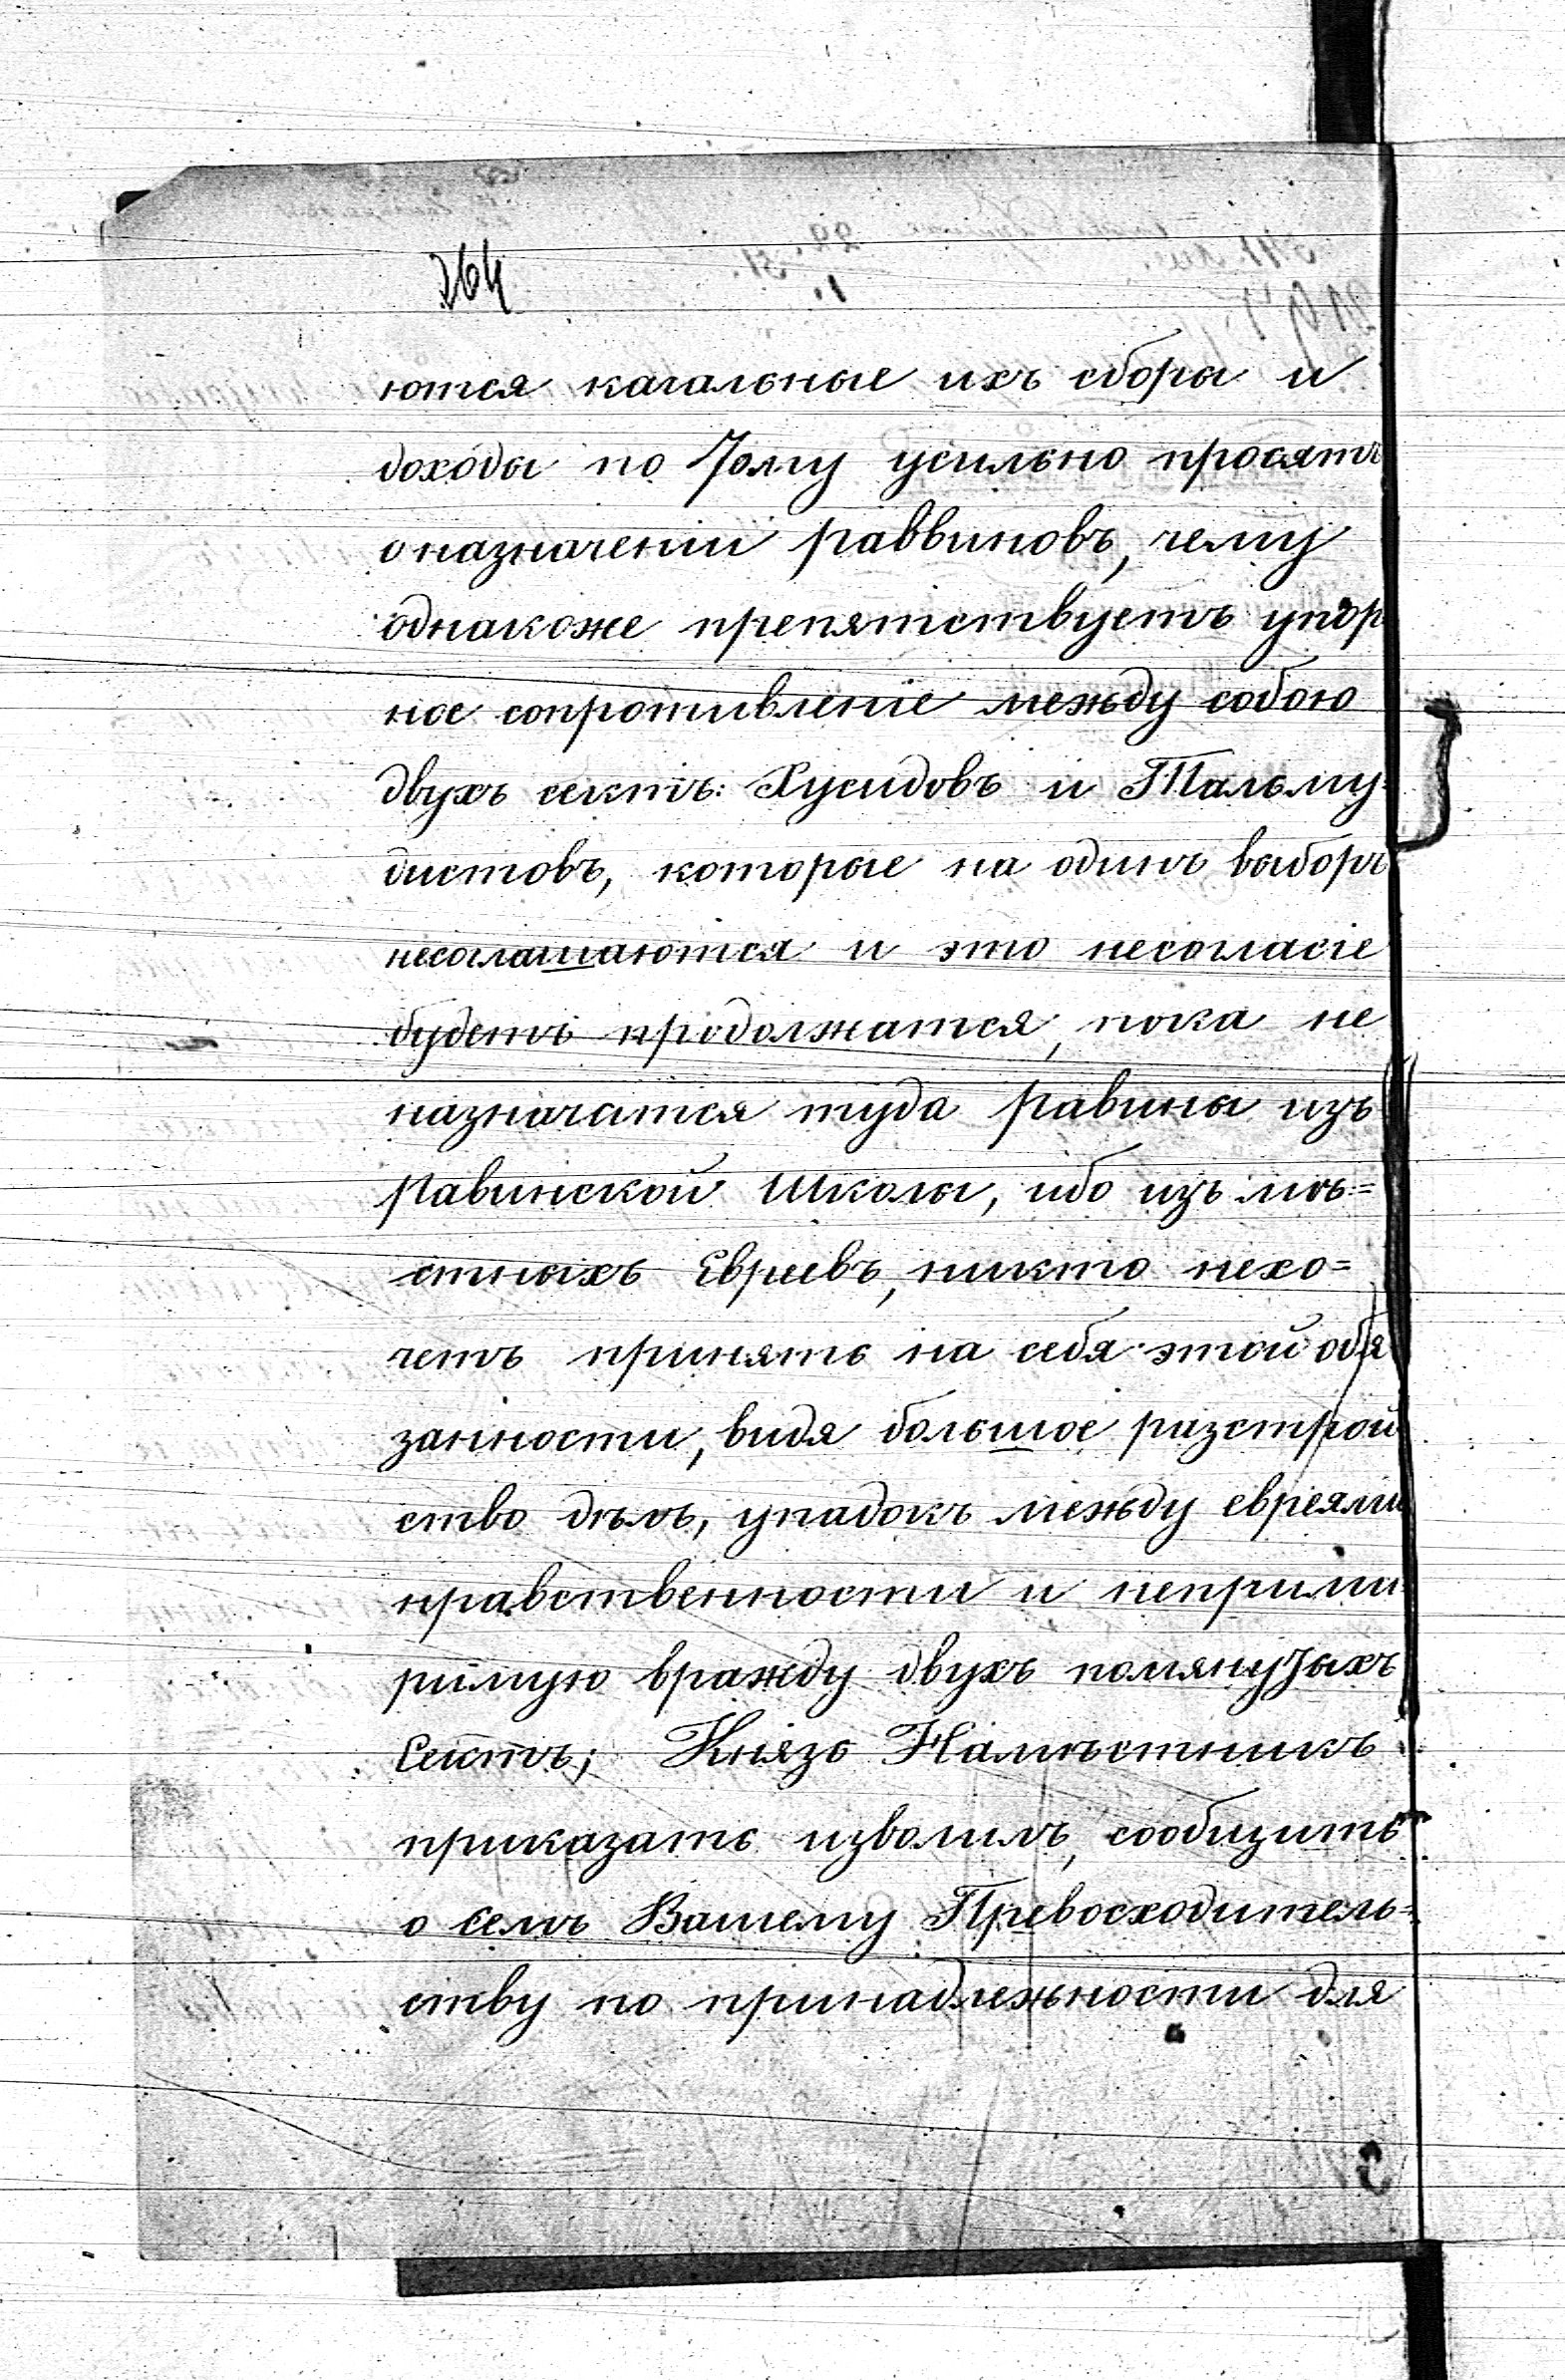 264
ются кагальные ихъ сборы и
доходы по Тому усильно просятъ
о назначеніи раввиновъ, чему
однакоже препятствуетъ упор
ное сопротивленіе между собою
двухъ сектъ: Хусидовъ и Тальму-
дистовъ, которые на одинъ выборъ
несоглашаются и это несогласіе
будетъ продолжатся, пока не
назначатся туда равины изъ
равинской школы, ибо изъ мѣ=
стныхъ Евреевъ, никто нехо=
четъ принять на себя этой обя
занности, видя большое разстрой
ство дѣлъ, упадокъ между евреями
нравственности и неприми-
римую вражду двухъ помянутыхъ
Сектъ; Князь Намѣстникъ
приказать изволилъ, сообщить
о семъ Вашему Превосходитель=
ству по принадлежности для